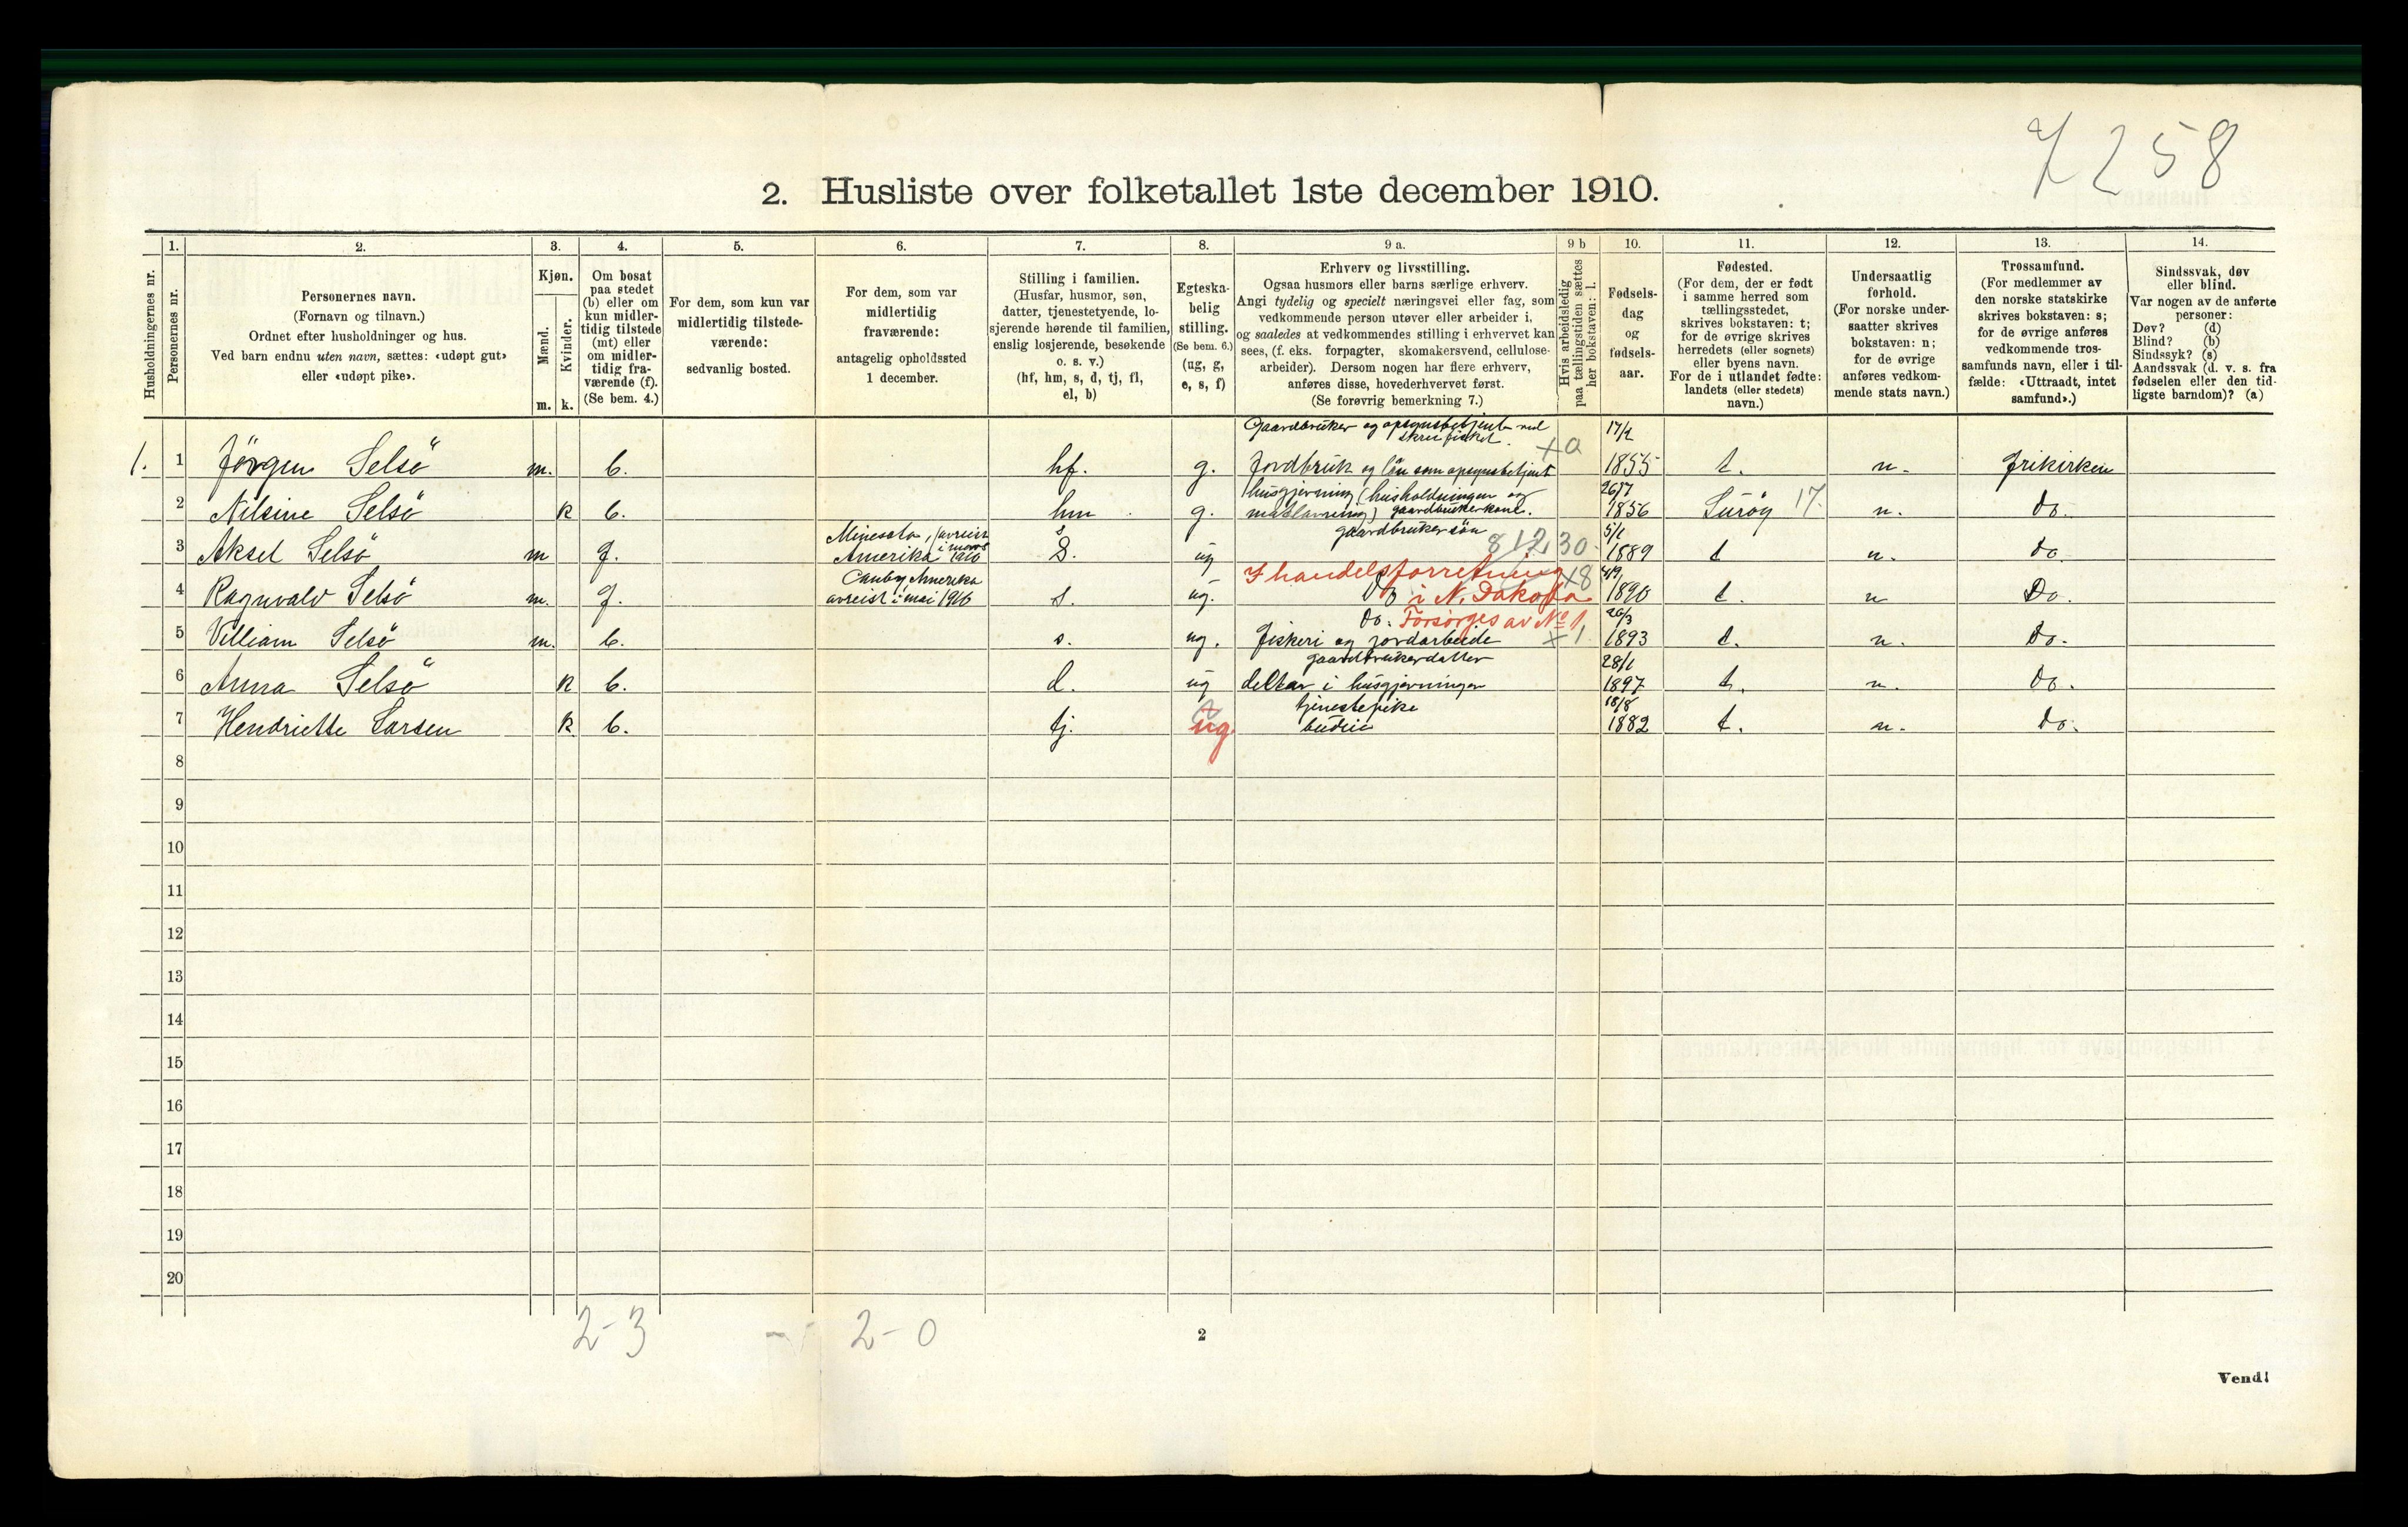 7258
2. Husliste over folketallet 1ste december 1910.
Husholdningernes nr.
1.
Personernes nr.
2.
Personernes navn.
(Fornavn og tilnavn.)
Ordnet efter husholdninger og hus.
Ved barn endnu uten navn, sættes: «udøpt gut»
eller «udøpt pike».
3.
Kjøn.
Mænd.
Kvinder.
m. k.
4.
Om bosat
paa stedet
(b) eller om
kun midler-
tidig tilstede
(mt) eller
om midler-
tidig fra-
værende (f).
(Se bem. 4.)
5.
For dem, som kun var
midlertidig tilstede-
værende:
sedvanlig bosted.
6.
For dem, som var
midlertidig
fraværende:
antagelig opholdssted
1 december.
7.
Stilling i familien.
(Husfar, husmor, søn,
datter, tjenestetyende, lo-
sjerende hørende til familien,
enslig losjerende, besøkende
o. s. v.)
(hf, hm, s, d, tj, fl,
el, b)
8.
Egteska-
belig
stilling.
(Se bem. 6.)
(ug, g,
e, s, f)
9 a.
Erhverv og livsstilling.
Ogsaa husmors eller barns særlige erhverv.
Angi tydelig og specielt næringsvei eller fag, som
vedkommende person utøver eller arbeider i,
og saaledes at vedkommendes stilling i erhvervet kan
sees, (f. eks. forpagter, skomakersvend, cellulose-
arbeider). Dersom nogen har flere erhverv,
anføres disse, hovederhvervet først.
(Se forøvrig bemerkning 7.)
9 b
Hvis arbeidsledig
paa tællingstiden sættes
her bokstaven: l.
10.
Fødsels-
dag
og
fødsels-
aar.
11.
Fødested.
(For dem, der er født
i samme herred som
tællingsstedet,
skrives bokstaven: t;
for de øvrige skrives
herredets (eller sognets)
eller byens navn.
For de i utlandet fødte:
landets (eller stedets)
navn.)
12.
Undersaatlig
forhold.
(For norske under-
saatter skrives
bokstaven: n;
for de øvrige
anføres vedkom-
mende stats navn.)
13.
Trossamfund.
(For medlemmer av
den norske statskirke
skrives bokstaven: s;
for de øvrige anføres
vedkommende tros-
samfunds navn, eller i til-
fælde: «Uttraadt, intet
samfund».)
14.
Sindssvak, døv
eller blind.
Var nogen av de anførte
personer:
Døv? (d)
Blind? (b)
Sindssyk? (s)
Aandssvak (d. v. s. fra
fødselen eller den tid-
ligste barndom)? (a)
Gaardbruker og opsynsbetjent ved
skreifisket. +a 17/2
1. 1 Jörgen Selsö m. b. hf. g. Jordbruk og lön som opsynsbetjent 1855 t. n. Frikirken
husgjerning (husholdningen og 26/7
2 Nilsine Selsö k b. hm g. matlavning) gaardbrukerkone. 1856 Suröy 17. n. do.
Minesota, (avreist gaardbrukersön 5/1
3 Aksel Selsö m f. Amerika i mars 1910 S. ug 81230 1889 t n. do
Canby, Amerika I handelsforretning +8 4/9
4 Ragnvald Selsö m. f. avreist i mai 1910 s. ug. Do i N. Dakota 1890 t. n Do.
do. Forsörges av No 1 26/3
5 Villiam Selsö m. b. s. ug. fiskeri og jordarbeide +1 1893 t. n. Do.
gaardbrukerdatter 28/1
6 Anna Selsö k b. d. ug deltar i husgjerningen 1897 t. n. do.
tjenestepike 18/8
7 Hendriette Larsen k b. tj. ug. budeie 1882 t. n. do.
8
9
10
11
12
13
14
15
16
17
18
19
20
2-3 2-0
2
Vend!